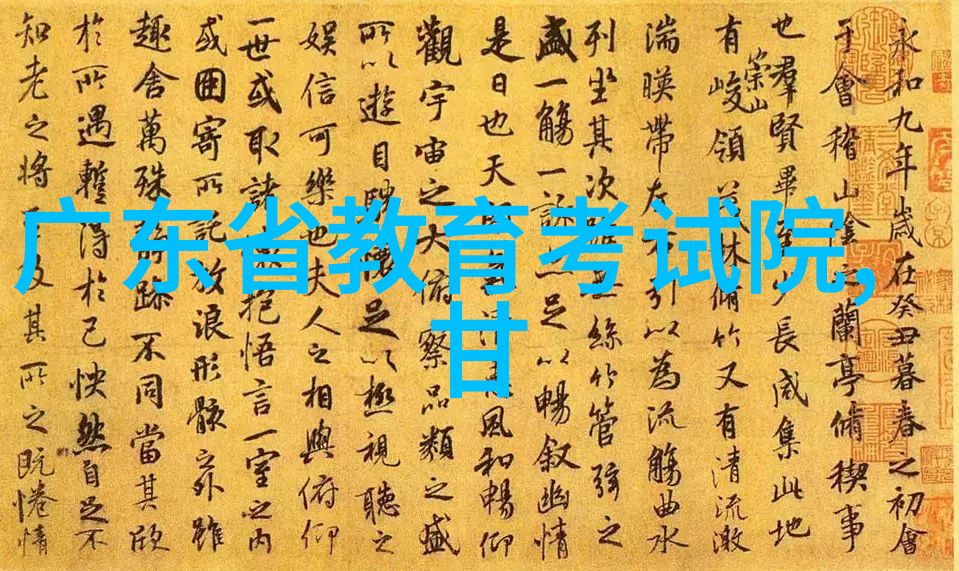 广东省教育考试院,
甘
永和九年歲在癸丑暮春之初會
于會稽山陰之蘭亭脩稧事
也羣賢畢至少長咸集此地
有崇山峻領茂林脩竹又有清流激
湍暎帶左右引以為流觴曲水
列坐其次雖無絲竹管弦之
盛一觴一詠亦足以暢叙幽情
是日也天風和暢仰
觀宇宙之大俯察品類之盛
所以遊目騁懷足以極視聽之
娛信可樂也夫人之相與俯仰
一世或取諸抱悟言一室之內
或因寄所託放浪形骸之外雖
趣舍萬殊靜躁不同當其欣
於所遇暫得於己怏然自足不
知老之將及其所之既惓情